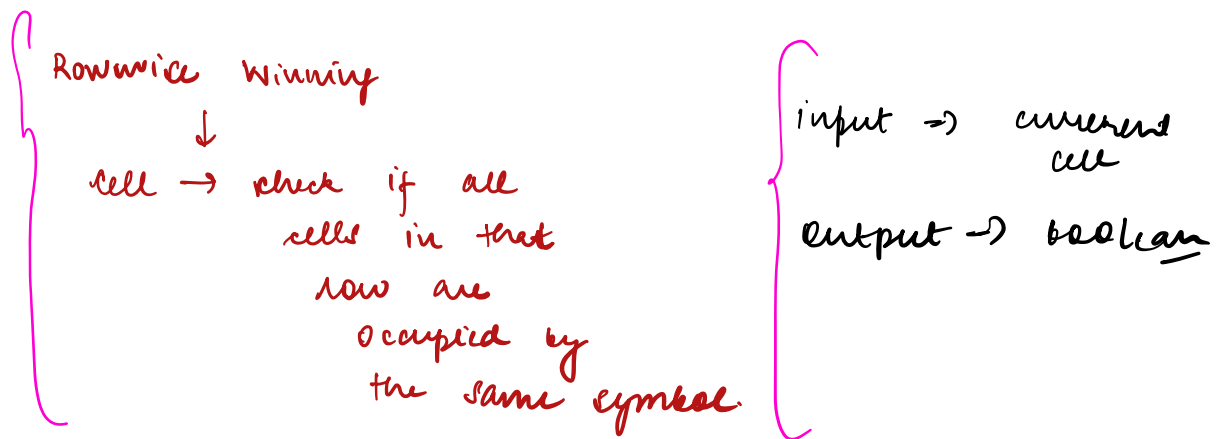 Rowwise Winning
↓
cell → check if all
cells in that
row are
occupied by
the same symbol.
input => current
cell
output → boolean